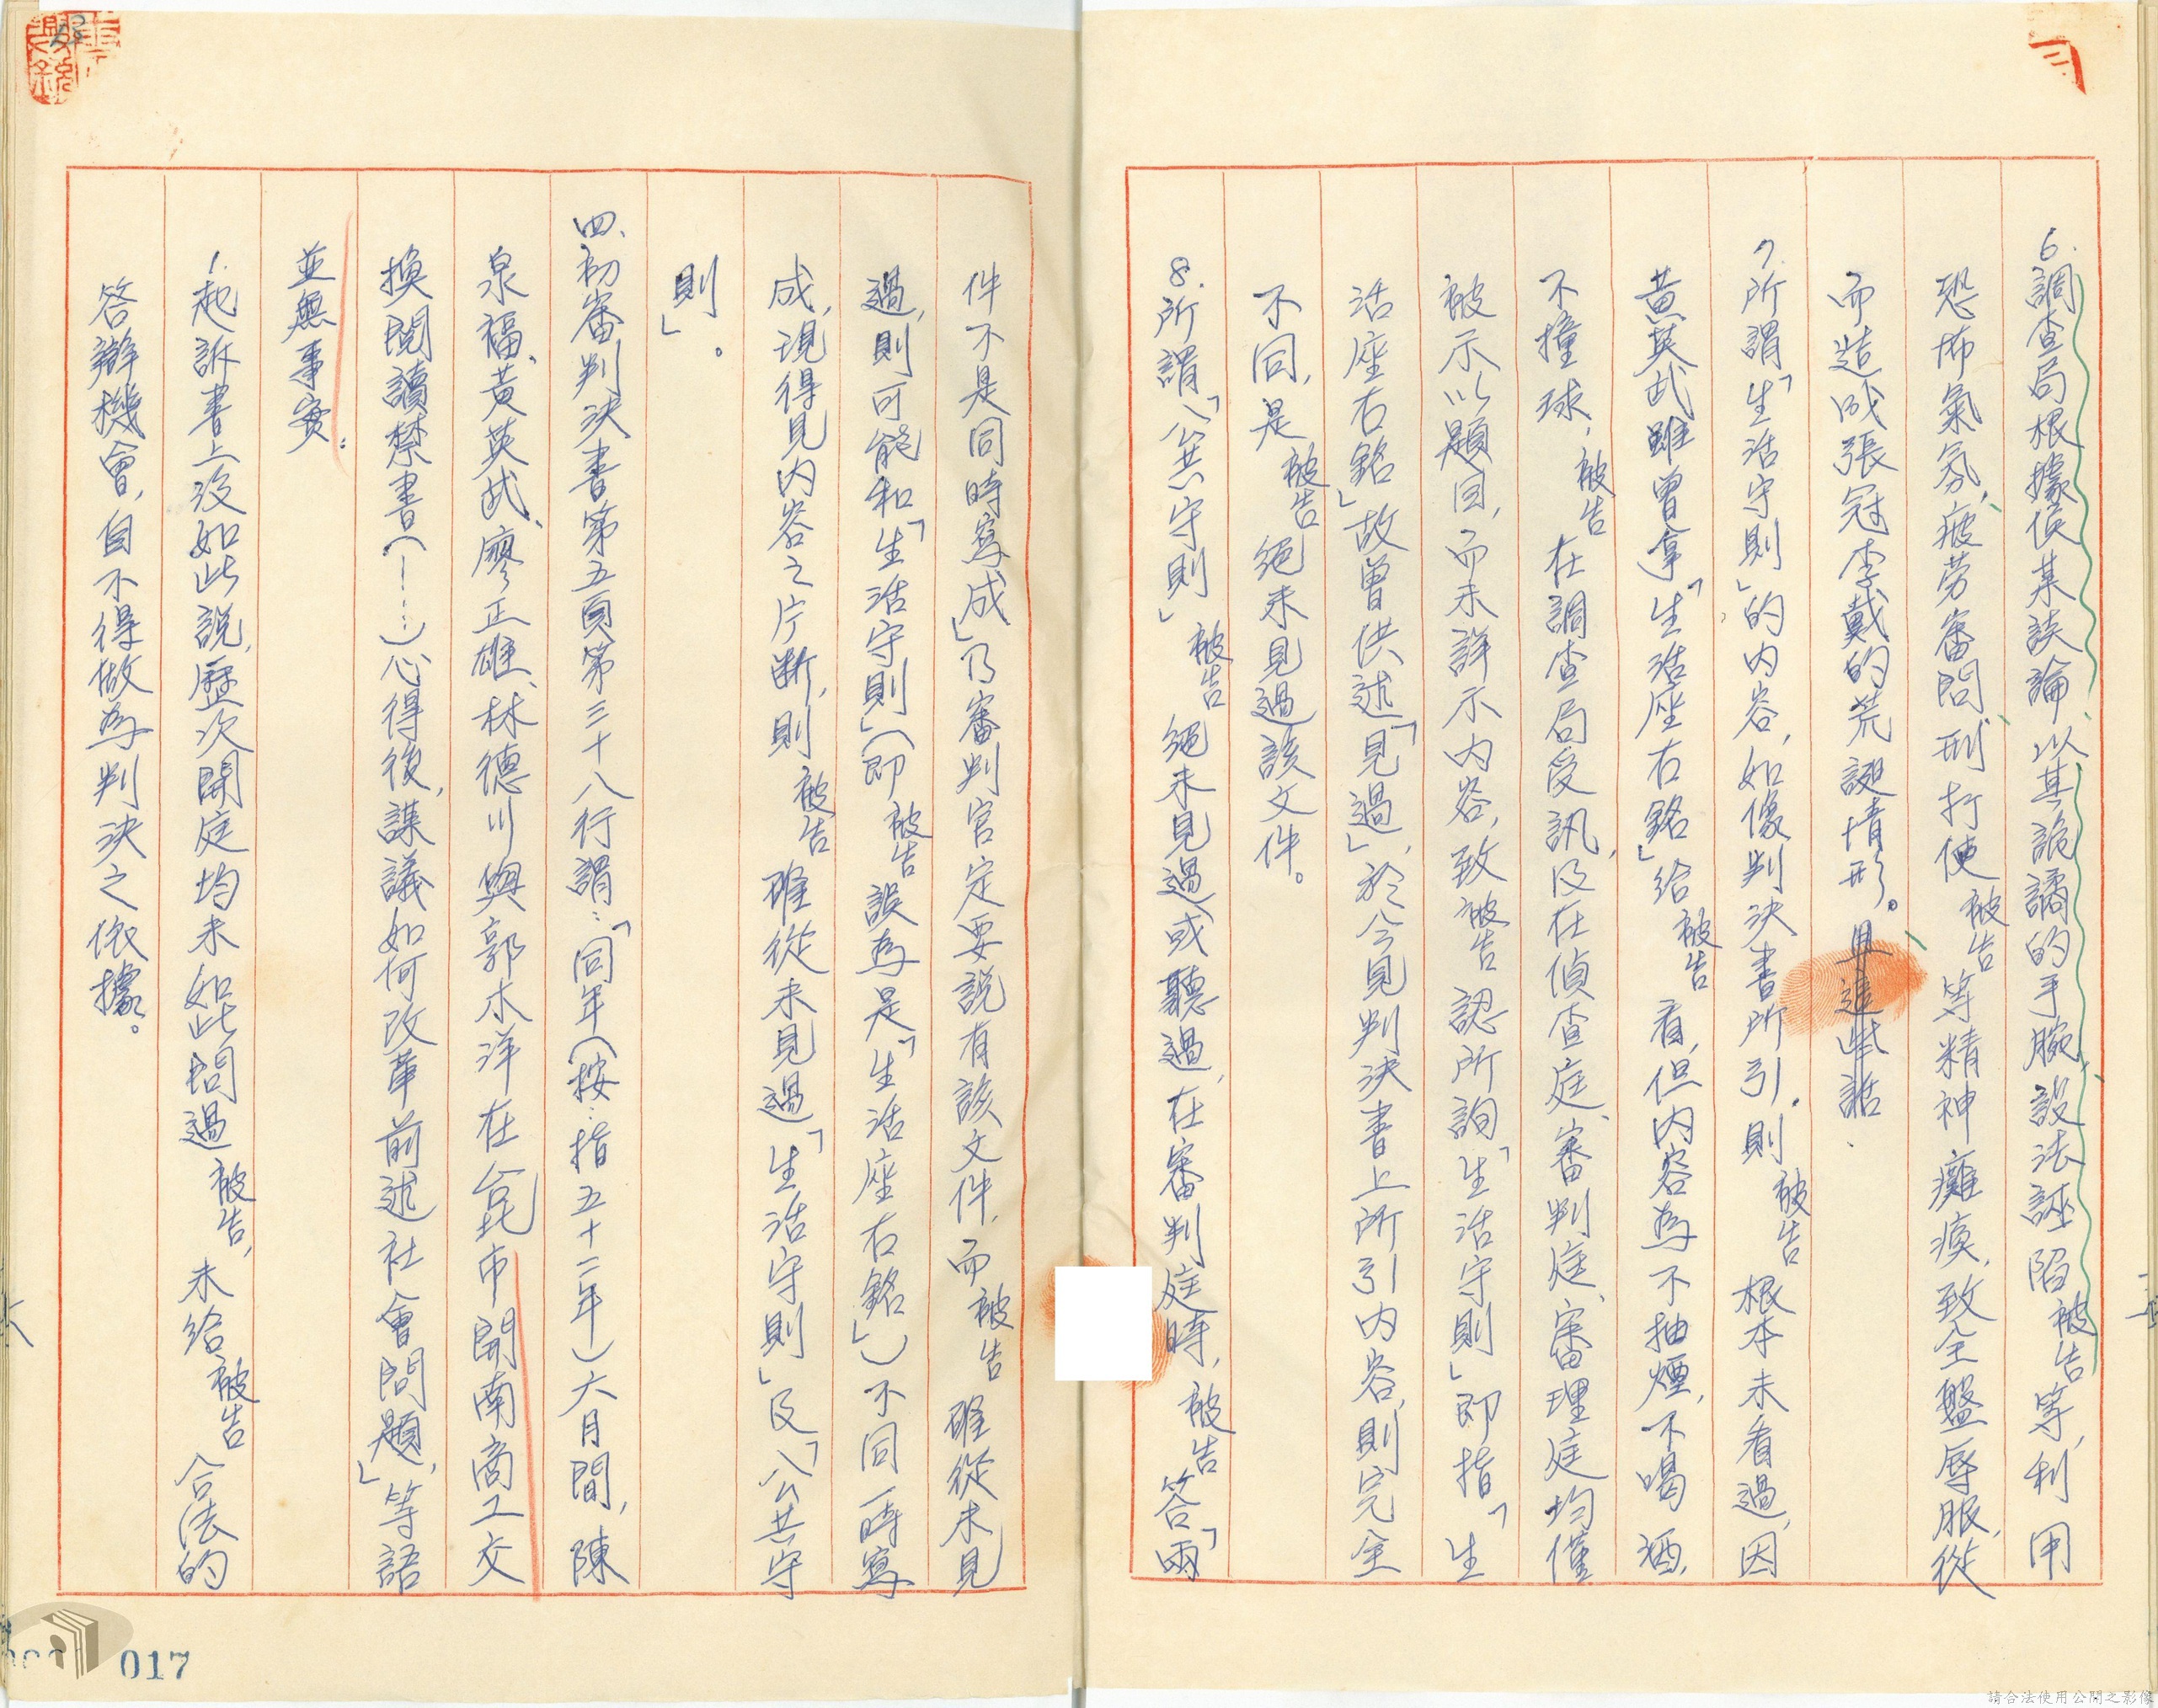 6.調查局根據侯某談論以其詭譎的手腕,設法誣陷被告等,利用
恐怖氣氛,疲勞審問、刑打使被告等精神癱瘓,致全盤辱服,從
而造成張冠李戴的荒誕情形。且這些話.
7.所謂「生活守則」的內容,如像判決書所引,則被告根本未看過,因
黃英武雖曾拿「生活座右銘」給被告看,但內容為不抽煙,不喝酒,
不撞球,被告在調查局受訊,及在偵查庭、審判庭、審理庭均僅
被示以題目,而未詳示內容,致被告認所詢「生活守則」即指「生
活座右銘」故曾供述「見過」,於今見判決書上所引內容,則完全
不同,是被告絕未見過該文件。
8.所謂「公共守則」被告絕未見過或聽過,在審判庭時,被告答「兩
件不是同時寫成」乃審判官定要說有該文件,而被告確從未見
過,則可能和「生活守則」(即被告誤為是「生活座右銘」)不同時寫
成,現得見內容之片斷,則被告確從未見過「生活守則」及「公共守
則」。
四、初審判決書第五頁第三十八行謂:「同年(按:指五十二年)六月間,陳
泉福、黃英武、廖正雄、林德川與郭木洋在台北市開南商工交
換閱讀禁書(-…)心得後,謀議如何改革前述社會問題,」等語
並無事實:
1.起訴書上沒如此說,歷次開庭均未如此問過被告,未給被告合法的
答辯機會,自不得做為判決之依據。
017
請合法使用公開之影像